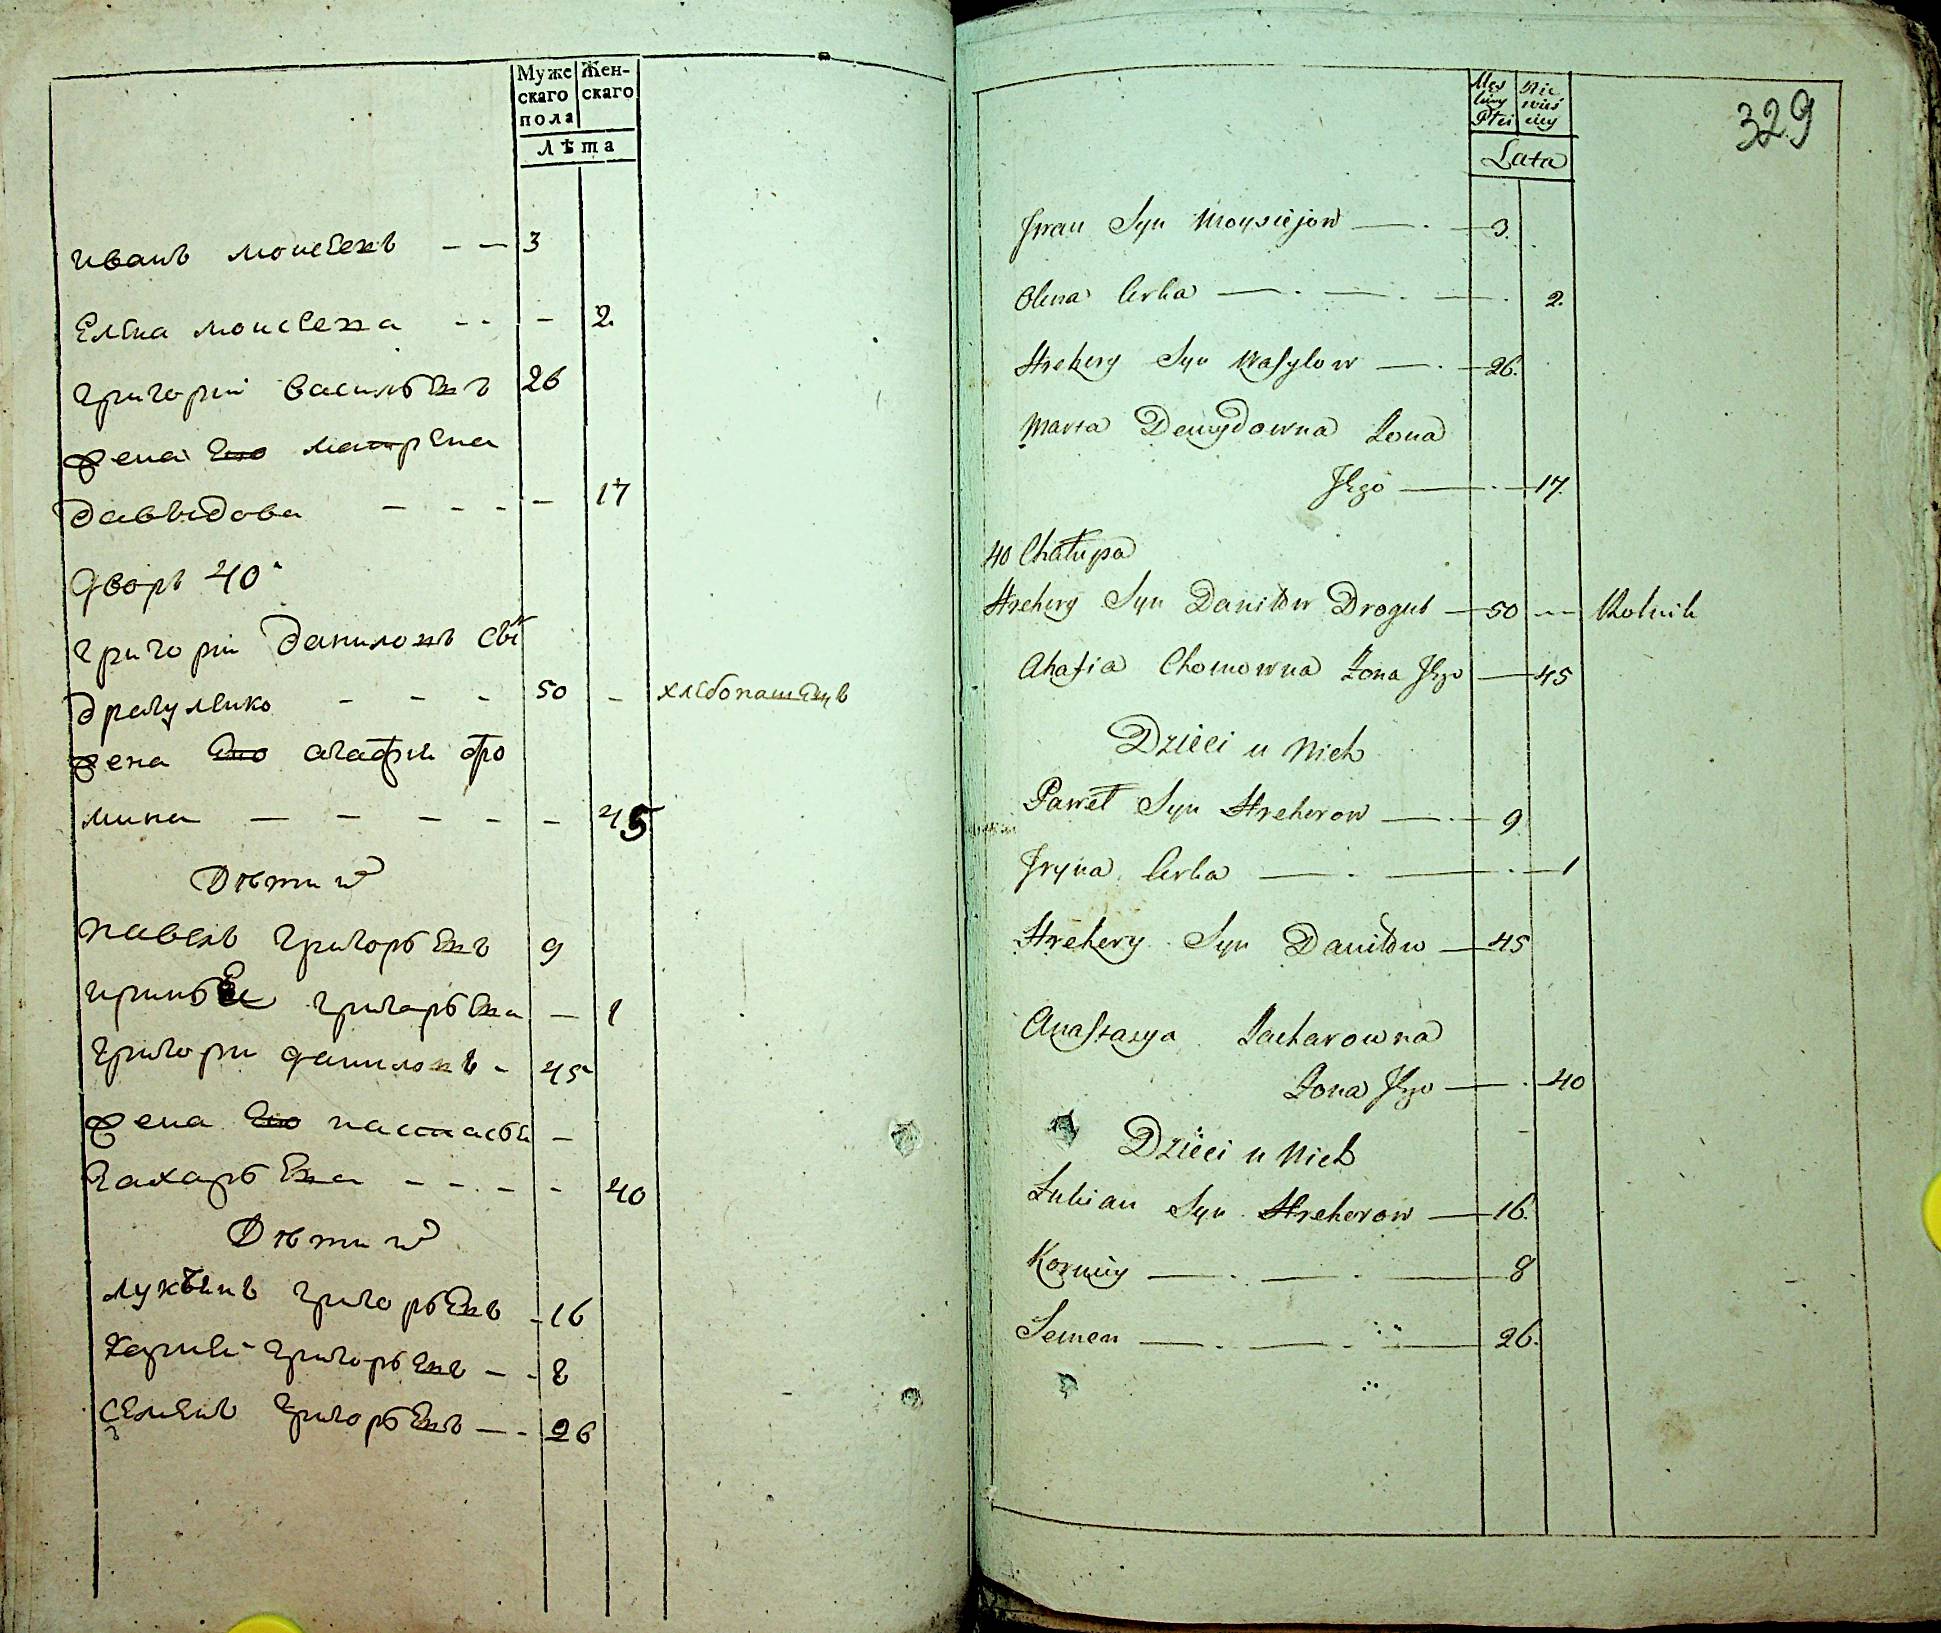 Муже Жен-
скаго скаго
пола
Лѣта
иванъ моисеевъ — — 3
Елена моисеева - - - 2
григорий васильевъ 26
жена ево матрена
давыдова - - - - 17
дворъ 40
григорий даниловъ сы
драгуленко - - - 50 - хлебопашецъ
жена ево агафия фо
мина — - - - - 45
Дѣти их
павелъ григорьевъ 9
григорьева — 1
григори даниловъ - 45
жена ево настасья —
захарьева - - - - 40
Дѣти их
лукьянъ григорьевъ - 16
карней григорьевъ - - 8
семенъ григорьевъ — - 26
Męs Nie
kiey wieś
Płci ciey
Lata
329
Jwan Syn Moysiejow — 3.
Olena Corka — 2.
Hrehory Syn Wasylow — 26.
Marta Demydowna Żona
Jego — 17.
40 Chałupa
Hrehory Syn Daniłow Drogul — 50 -- Rolnik
Ahafia Chomowna Żona Jego — 45
Dzieci u Nich
Paweł Syn Hrehorow — 9
Jryna Corka — 1
Hrehory Syn Daniłow — 45
Anastazya Zacharowna
Żona Jego — 40
Dzieci u Nich
Łukian Syn Hrehorow — 16.
Korniy — 8
Semen — 26.